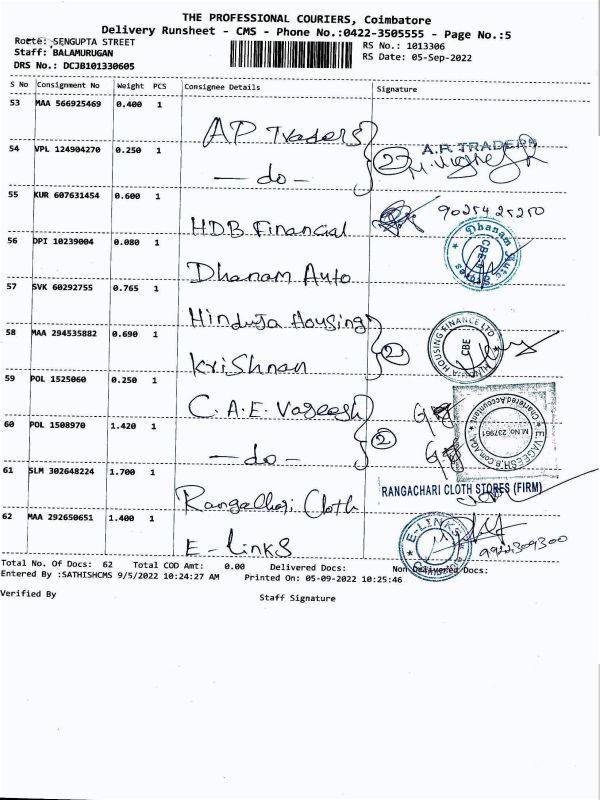 THE PROFESSIONAL COURIERS, Coimbatore
Delivery Runsheet - CMS - Phone No.:0422-3505555 - Page No.:5
Route: SENGUPTA STREET
Staff: BALAMURUGAN
DRS No.: DCJB101330605
RS No.: 1013306
RS Date: 05-Sep-2022
S No Consignment No Weight PCS Consignee Details Signature
53 MAA 566925469 0.400 1 AP Traders
54 VPL 124904270 0.250 1 - do - 2 A.P. TRADERS
55 KUR 607631454 0.600 1 HDB Financial 9025425250
56 DPI 10239004 0.080 1 Dhanam Auto Dhanam Auto Stores CBE
57 SVK 60292755 0.765 1 Hinduja Housing
58 MAA 294535882 0.690 1 Krishnan 2 HINDUJA HOUSING FINANCE LTD CBE
59 POL 1525060 0.250 1 C.A.E. Vageesh
60 POL 1508970 1.420 1 - do - 2 E.VAGEESH,B.Com,ACA M.No. 237961 Chartered Accountant
61 SLM 302648224 1.700 1 Rangachari Cloth RANGACHARI CLOTH STORES (FIRM)
62 MAA 292650651 1.400 1 E-links E-LINKS
Total No. Of Docs: 62 Total COD Amt: 0.00 Delivered Docs: Non Delivered Docs:
Entered By :SATHISHCMS 9/5/2022 10:24:27 AM Printed On: 05-09-2022 10:25:46
Verified By Staff Signature